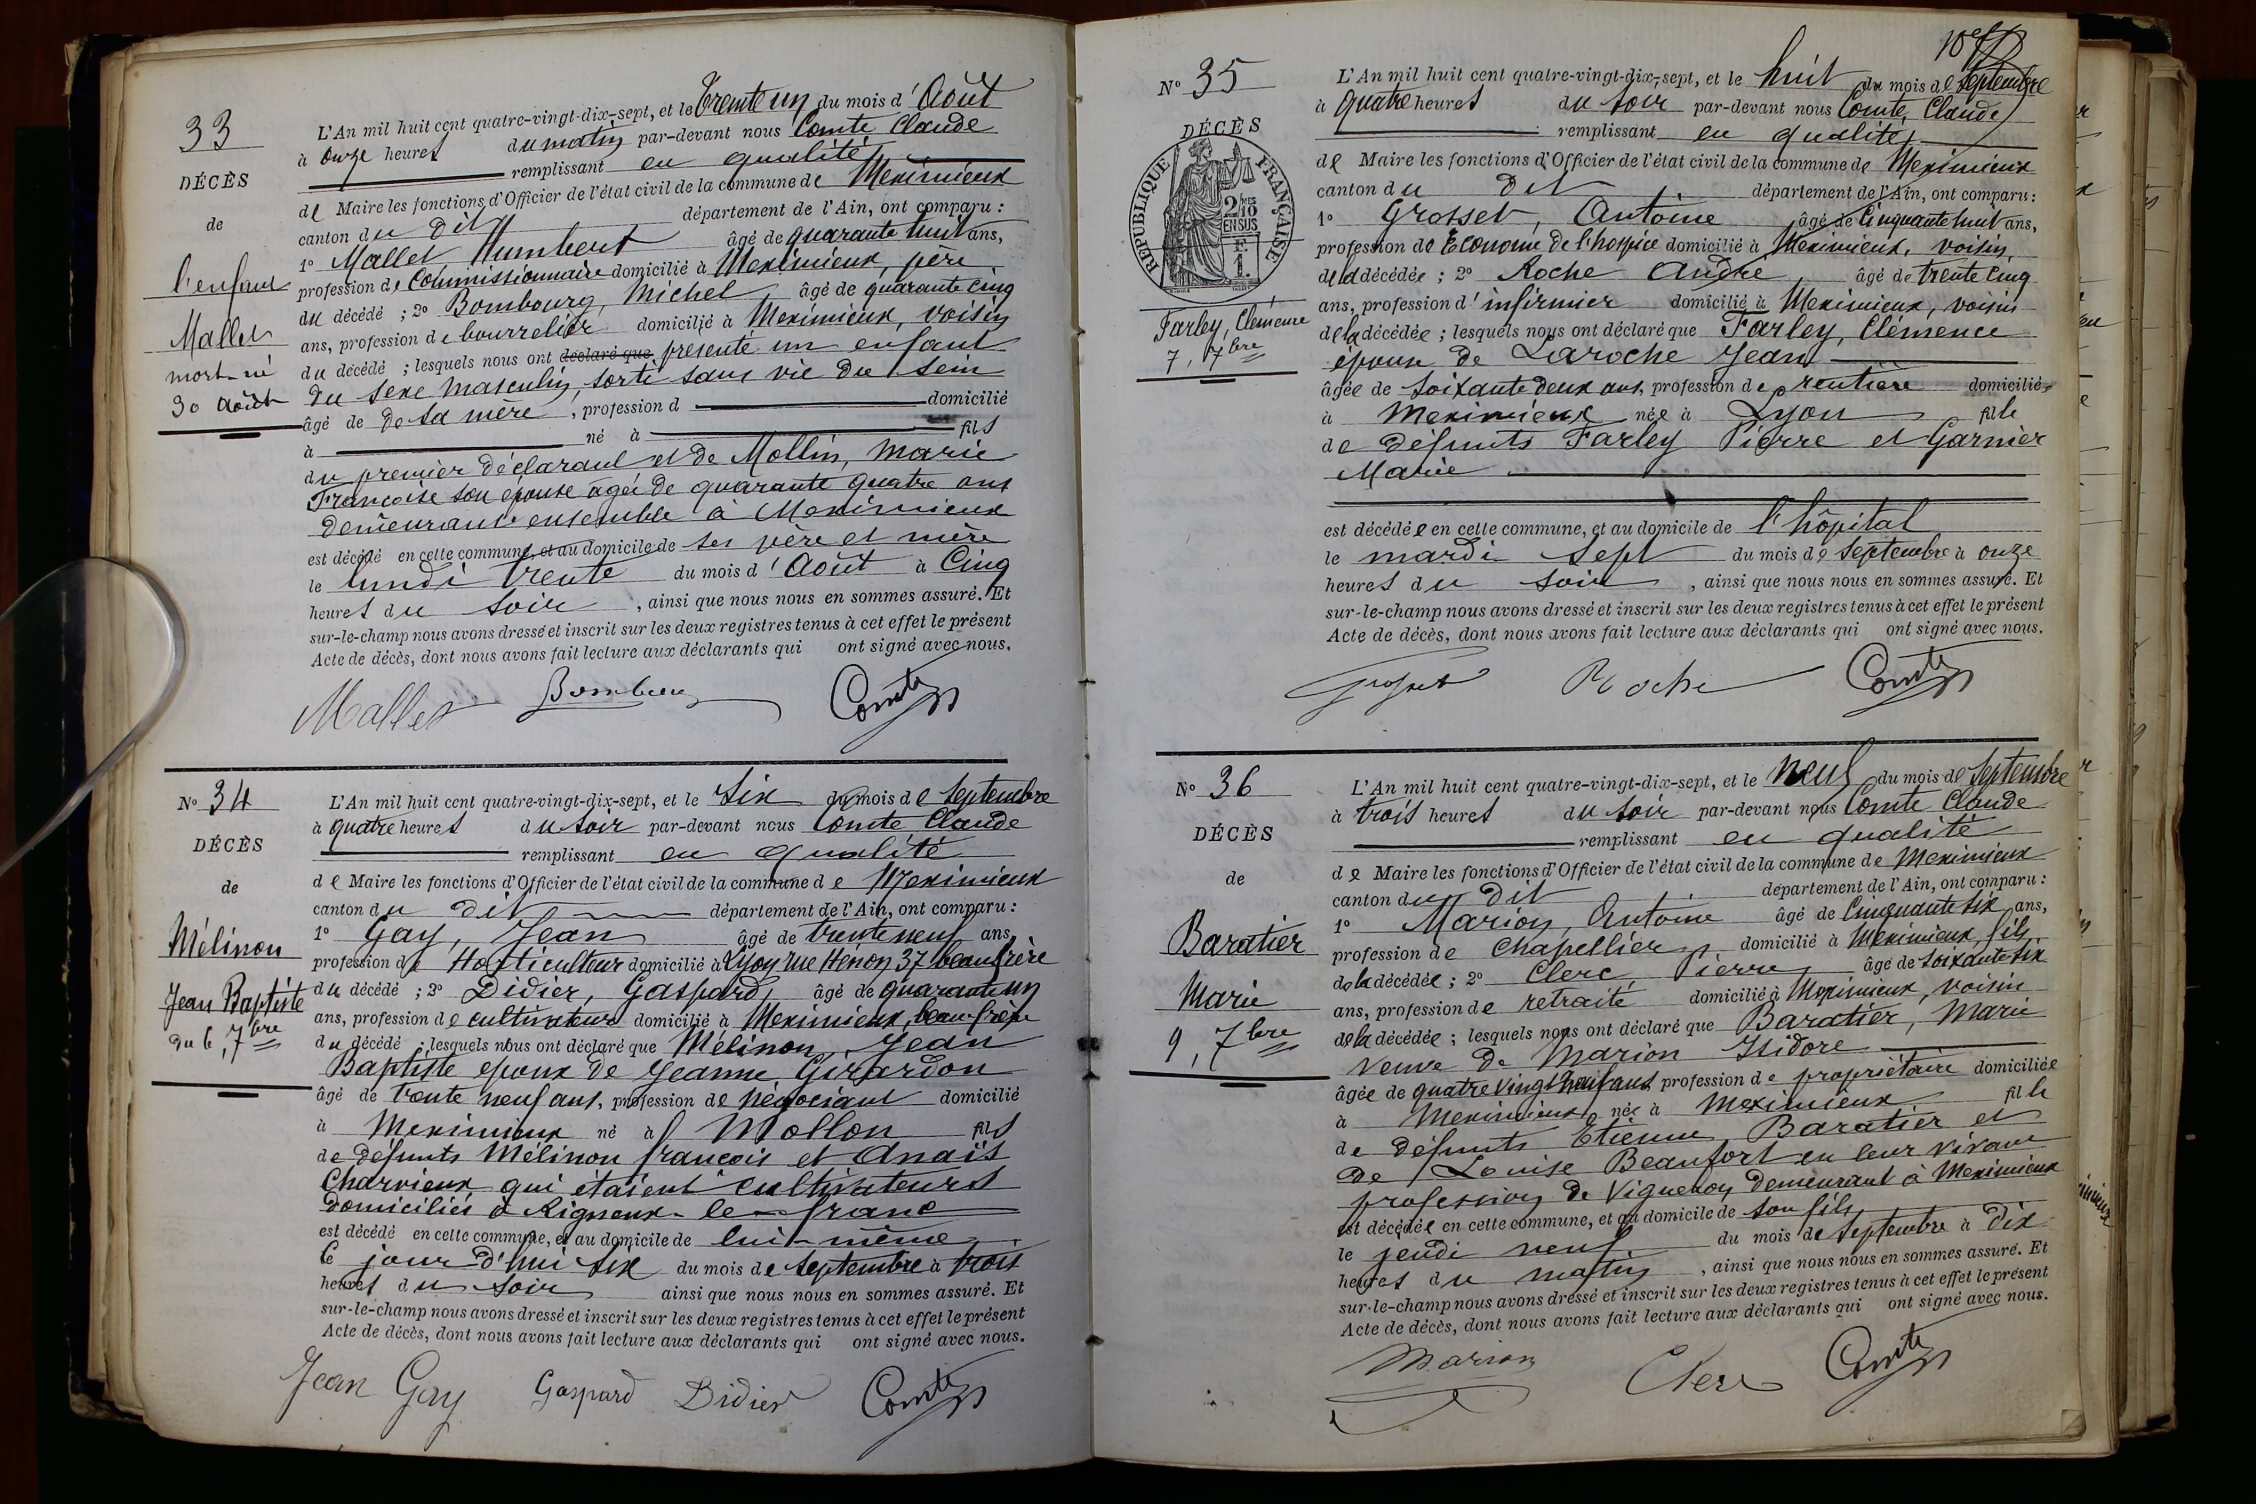 33
DÉCÈS
de
l'enfant
Mallet
mort-né
30 août
L'An mil huit cent quatre-vingt-dix-sept, et le trente un du mois d'Août
à onze heures du matin par-devant nous Comte Claude
remplissant en qualité
de Maire les fonctions d'Officier de l'état civil de la commune de Meximieux
canton du dit département de l'Ain, ont comparu :
1º Mallet Humbert âgé de quarante huit ans,
profession de Commissionnaire domicilié à Meximieux, père
du décédé ; 2º Bombourg, Michel âgé de quarante cinq
ans, profession de bourrelier domicilié à Meximieux, voisin
du décédé ; lesquels nous ont déclaré que présenté un enfant
du sexe masculin, sorti sans vie du sein
âgé de de sa mère, profession d domicilié
à né à fils
du premier déclarant et de Mollin, Marie
Françoise son épouse âgée de quarante quatre ans
demeurant ensemble à Meximieux
est décédé en cette commune, et au domicile de ses père et mère
le lundi trente du mois d'Août à Cinq
heures du soir, ainsi que nous nous en sommes assuré. Et
sur-le-champ nous avons dressé et inscrit sur les deux registres tenus à cet effet le présent
Acte de décès, dont nous avons fait lecture aux déclarants qui ont signé avec nous.
Mallet Comte
Nº 34
DÉCÈS
de
Mélinon
Jean Baptiste
du 6, 7bre
L'An mil huit cent quatre-vingt-dix-sept, et le six du mois de Septembre
à quatre heures du soir par-devant nous Comte Claude
remplissant en qualité
de Maire les fonctions d'Officier de l'état civil de la commune de Meximieux
canton du dit département de l'Ain, ont comparu :
1º Gay, Jean âgé de trente neuf ans,
profession de Horticulteur domicilié à Lyon rue Hénon 37 beau frère
du décédé ; 2º Didier, Gaspard, âgé de quarante un
ans, profession de cultivateur domicilié à Meximieux, beau-frère
du décédé ; lesquels nous ont déclaré que Mélinon, Jean
Baptiste époux de Jeanne Girardon
âgé de trente neuf ans, profession de négociant domicilié
à Meximieux né à Mollon fils
de défunts Mélinon françois et Anaïs
Charvieux qui étaient cultivateurs
domiciliés à Rigneux-le-franc
est décédé en cette commune, et au domicile de lui-même
le jour d'hui six du mois de septembre à trois
heures du soir ainsi que nous nous en sommes assuré. Et
sur-le-champ nous avons dressé et inscrit sur les deux registres tenus à cet effet le présent
Acte de décès, dont nous avons fait lecture aux déclarants qui ont signé avec nous.
Jean Gay Gaspard Didier Comte
Nº 35
DÉCÈS
RÉPUBLIQUE FRANÇAISE
2/10 EN SUS
F. 1.
Farley, Clémence
7, 7bre
L'An mil huit cent quatre-vingt-dix-sept, et le huit du mois de Septembre
à quatre heures du soir par-devant nous Comte, Claude
remplissant en qualité
de Maire les fonctions d'Officier de l'état civil de la commune de Meximieux
canton du dit département de l'Ain, ont comparu :
1º Grosset, Antoine âgé de Cinquante huit ans,
profession de Econome de l'hospice domicilié à Meximieux, voisin,
de la décédée ; 2º Roche André âgé de trente cinq
ans, profession d'infirmier domicilié à Meximieux, voisin
de la décédée ; lesquels nous ont déclaré que Farley, Clémence
épouse de Laroche Jean
âgée de soixante deux ans, profession de rentière domiciliée
à Meximieux née à Lyon fille
de défunts Farley Pierre et Garnier
Marie
est décédée en cette commune, et au domicile de l'hôpital
le mardi sept du mois de septembre à onze
heures du soir, ainsi que nous nous en sommes assuré. Et
sur-le-champ nous avons dressé et inscrit sur les deux registres tenus à cet effet le présent
Acte de décès, dont nous avons fait lecture aux déclarants qui ont signé avec nous.
Grosset Roche Comte
Nº 36
DÉCÈS
de
Baratier
Marie
9, 7bre
L'An mil huit cent quatre-vingt-dix-sept, et le neuf du mois de Septembre
à trois heures du soir par-devant nous Comte Claude
remplissant en qualité
de Maire les fonctions d'Officier de l'état civil de la commune de Meximieux
canton du dit département de l'Ain, ont comparu :
1º Marion, Antoine âgé de Cinquante six ans,
profession de Chapellier domicilié à Meximieux, fils
de la décédée ; 2º Clerc, Pierre âgé de soixante six
ans, profession de retraité domicilié à Meximieux, voisin
de la décédée ; lesquels nous ont déclaré que Baratier, Marie
veuve de Marion Isidore
âgée de quatre vingt neuf ans profession de propriétaire domiciliée
à Meximieux née à Meximieux fille
de défunts Etienne Baratier et
de Louise Beaufort en leur vivant
profession de Vigneron demeurant à Meximieux
est décédée en cette commune, et au domicile de son fils
le jeudi neuf du mois de Septembre à dix
heures du matin, ainsi que nous nous en sommes assuré. Et
sur-le-champ nous avons dressé et inscrit sur les deux registres tenus à cet effet le présent
Acte de décès, dont nous avons fait lecture aux déclarants qui ont signé avec nous.
Marion Clerc Comte